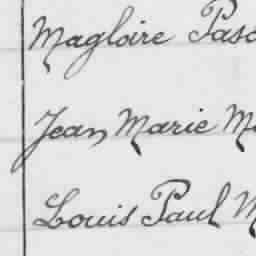 Magloire Pasc
Jean Marie Ma
Louis Paul M